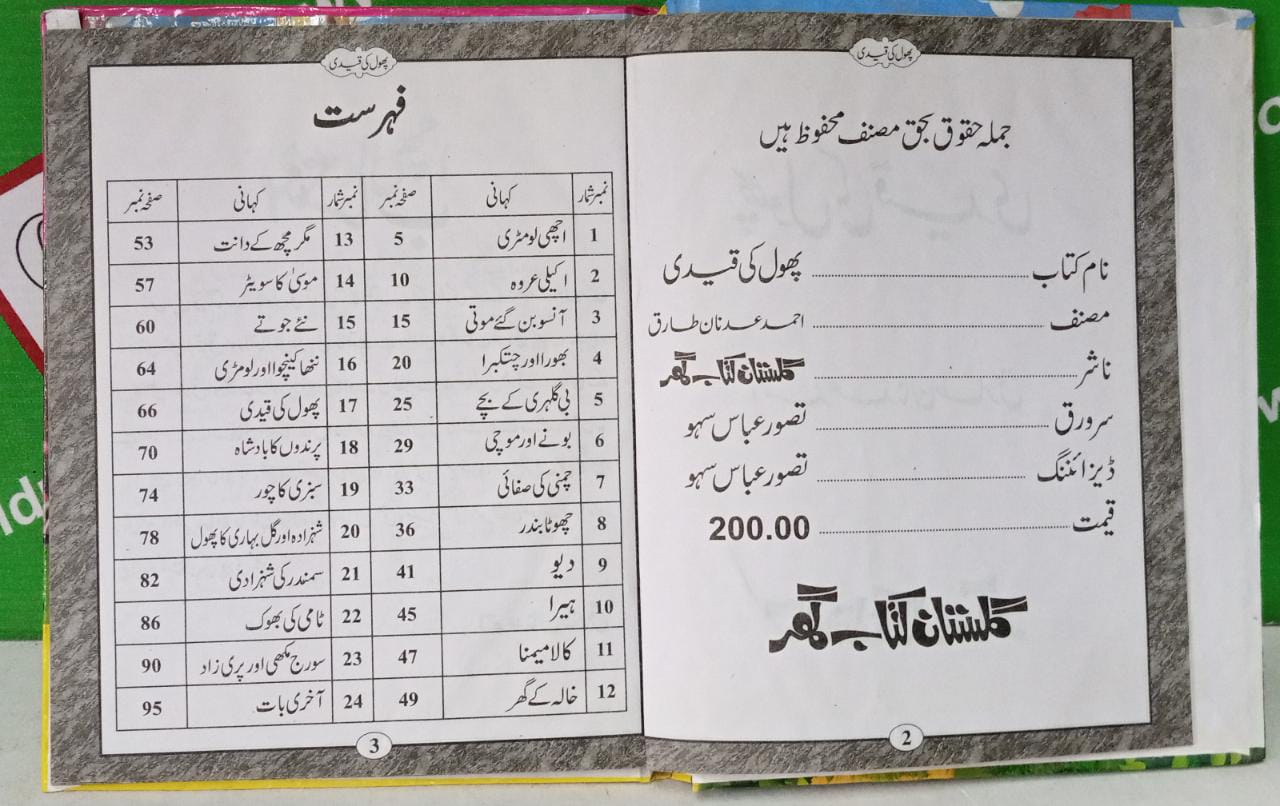 پھول کی قیدی
جملہ حقوق بحق مصنف محفوظ ہیں
نام کتاب ........ پھول کی قیدی
مصنف ........ احمد عدنان طارق
ناشر ........ گلستان کتاب گھر
سرورق ........ تصور عباس سہو
ڈیزائننگ ........ تصور عباس سہو
قیمت ........ 200.00
گلستان کتاب گھر
2
پھول کی قیدی
فہرست
نمبر شمار کہانی صفحہ نمبر نمبر شمار کہانی صفحہ نمبر
1 اچھی لومڑی 5 13 مگر مچھ کے دانت 53
2 اکیلی عروہ 10 14 موسیٰ کا سویٹر 57
3 آنسو بن گئے موتی 15 15 نئے جوتے 60
4 بھورا اور چتکبرا 20 16 ننھا کینچوا اور لومڑی 64
5 بی گلہری کے بچے 25 17 پھول کی قیدی 66
6 بونے اور موچی 29 18 پرندوں کا بادشاہ 70
7 چمنی کی صفائی 33 19 سبزی کا چور 74
8 چھوٹا بندر 36 20 شہزادہ اور گل بہاری کا پھول 78
9 دیو 41 21 سمندر کی شہزادی 82
10 ہیرا 45 22 ٹامی کی بھوک 86
11 کالا میمنا 47 23 سورج مکھی اور پری زاد 90
12 خالہ کے گھر 49 24 آخری بات 95
3